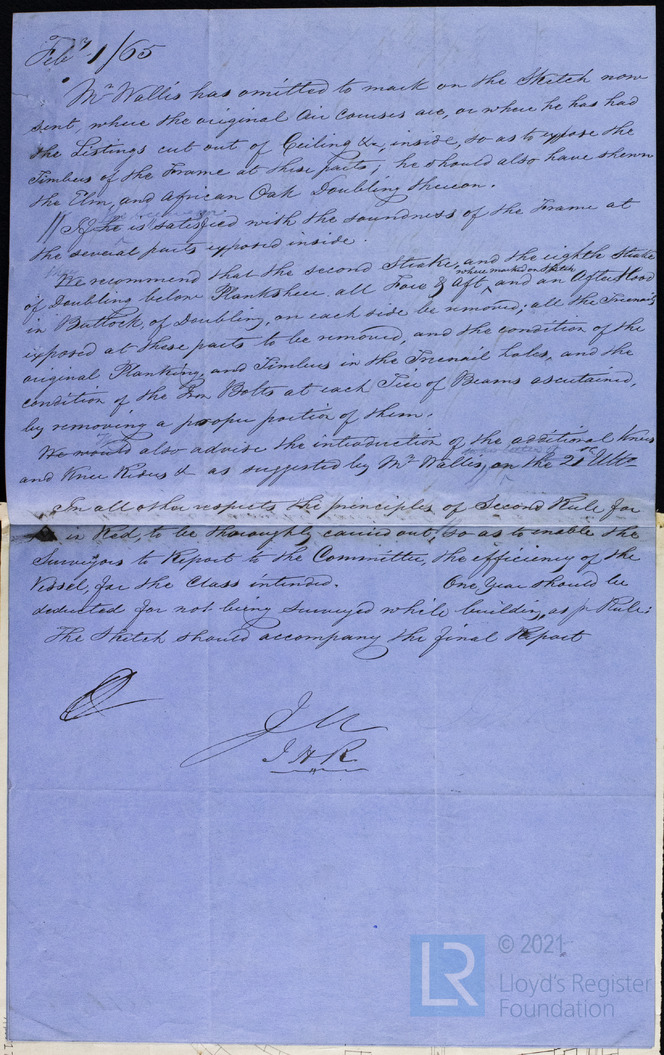 Feby 1/65
Mr Wallis has omitted to mark on the Sketch now
sent, where the original Air courses are, or where he has had
the Listings cut out of Ceiling &c, inside, so as to expose the
Timbers of the Frame at these parts; he should also have shewn
the Elm, and African Oak Doubling thereon.
// If he is satisfied with the soundness of the Frame at
the several parts exposed inside.
We recommend that the second Strake, and the eighth Strake
of Doubling below Plansheer all Fore & Aft, where marked on Sketch and an After Hood
in Buttock, of Doubling, on each side be removed; all the Treenails
exposed at these parts to be removed, and the condition of the
original Planking, and Timbers in the Treenail holes, and the
condition of the Iron Bolts at each Tier of Beams ascertained,
by removing a proper portion of them.
We would also advise the introduction of the additional Knees
and Knee Riders & as suggested by Mr Wallis, on the 21st Ulto
In all other respects the principles of Second Rule for
in Red, to be thoroughly carried out, so as to enable the
Surveyors to Report to the Committee, the efficiency of the
Vessel, for the Class intended. One Year should be
deducted for not being Surveyed while building, as pr Rule:
The Sketch should accompany the final Report
J M
J H R
© 2021
LR
Lloyd's Register
Foundation